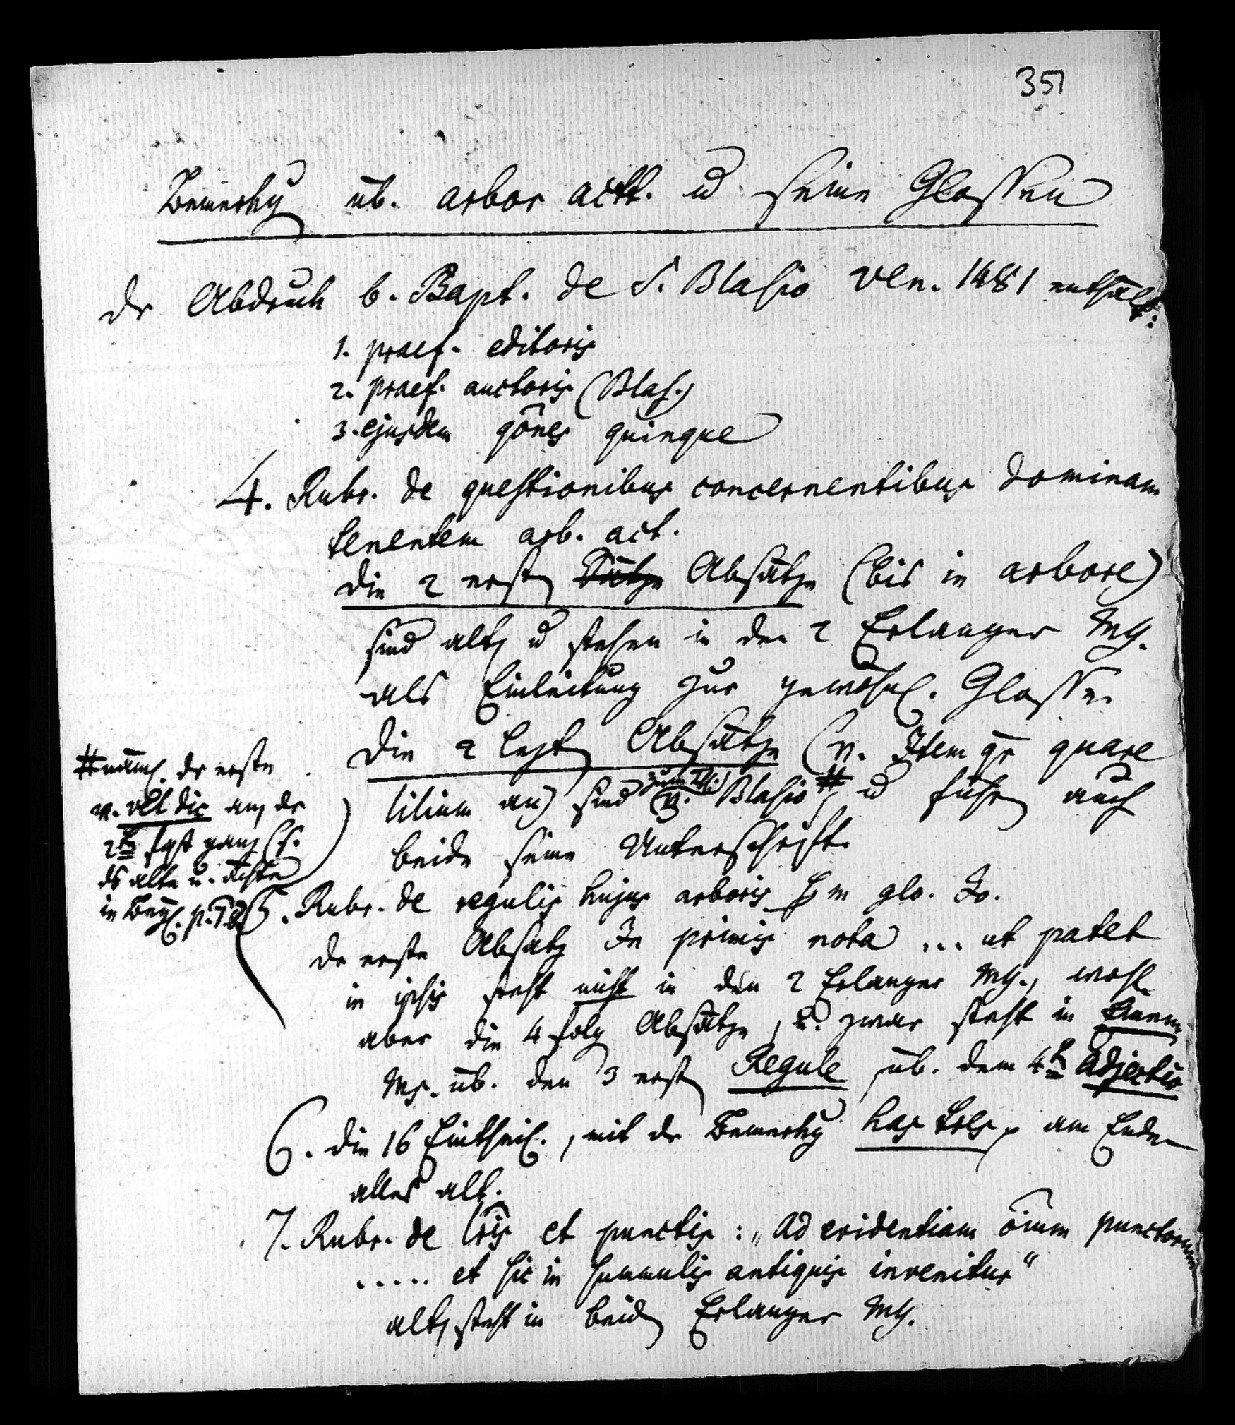 351
Bemerkg üb. arbor actt. u seine Glossen
dr Abdruck b. Bapt. de S. Blasio Ven. 1481 enthält:
1. praef. editoris
2. praef. auctoris (Blas.)
3. ejusdem qōnes quinque
4. Rubr. de questionibus concernentibus dominam
tenentem arb. act.
die 2 erst Sätze Absätze (bis in arbore)
sind alt u stehen in den 2 Erlanger Ms.
als Einleitung zur gewöhnl. Glosse.
die 2 lezt Absätze (v. Item qr quare
lilium an) sind (zum Th.) v. Blasio # u führ auch
beide seine Unterschrift.
# näml. dr erste
v. vel dic an, dr
2te fast ganz (s.
ds alte u. ächte
in Beyl. p. 72
5. Rubr. de regulis hujus arboris glo. Jo.
de erste Absatz In primis nota ... ut patet
in ipsis steht nicht in den 2 Erlanger Ms., wohl
aber die 4 folg Absätze, u. zwar steht in
Ms. üb. den 3 erst Regule, üb. dem 4t adjectio
6. die 16 Eintheil., mit dr Bemerkg has am Ende
alles alt.
7. Rubr. de lris et punctis: „ad evidentiam ōium punctorum
..... et sic in summulis antiquis invenitur“
alt, steht in beid Erlanger Ms.